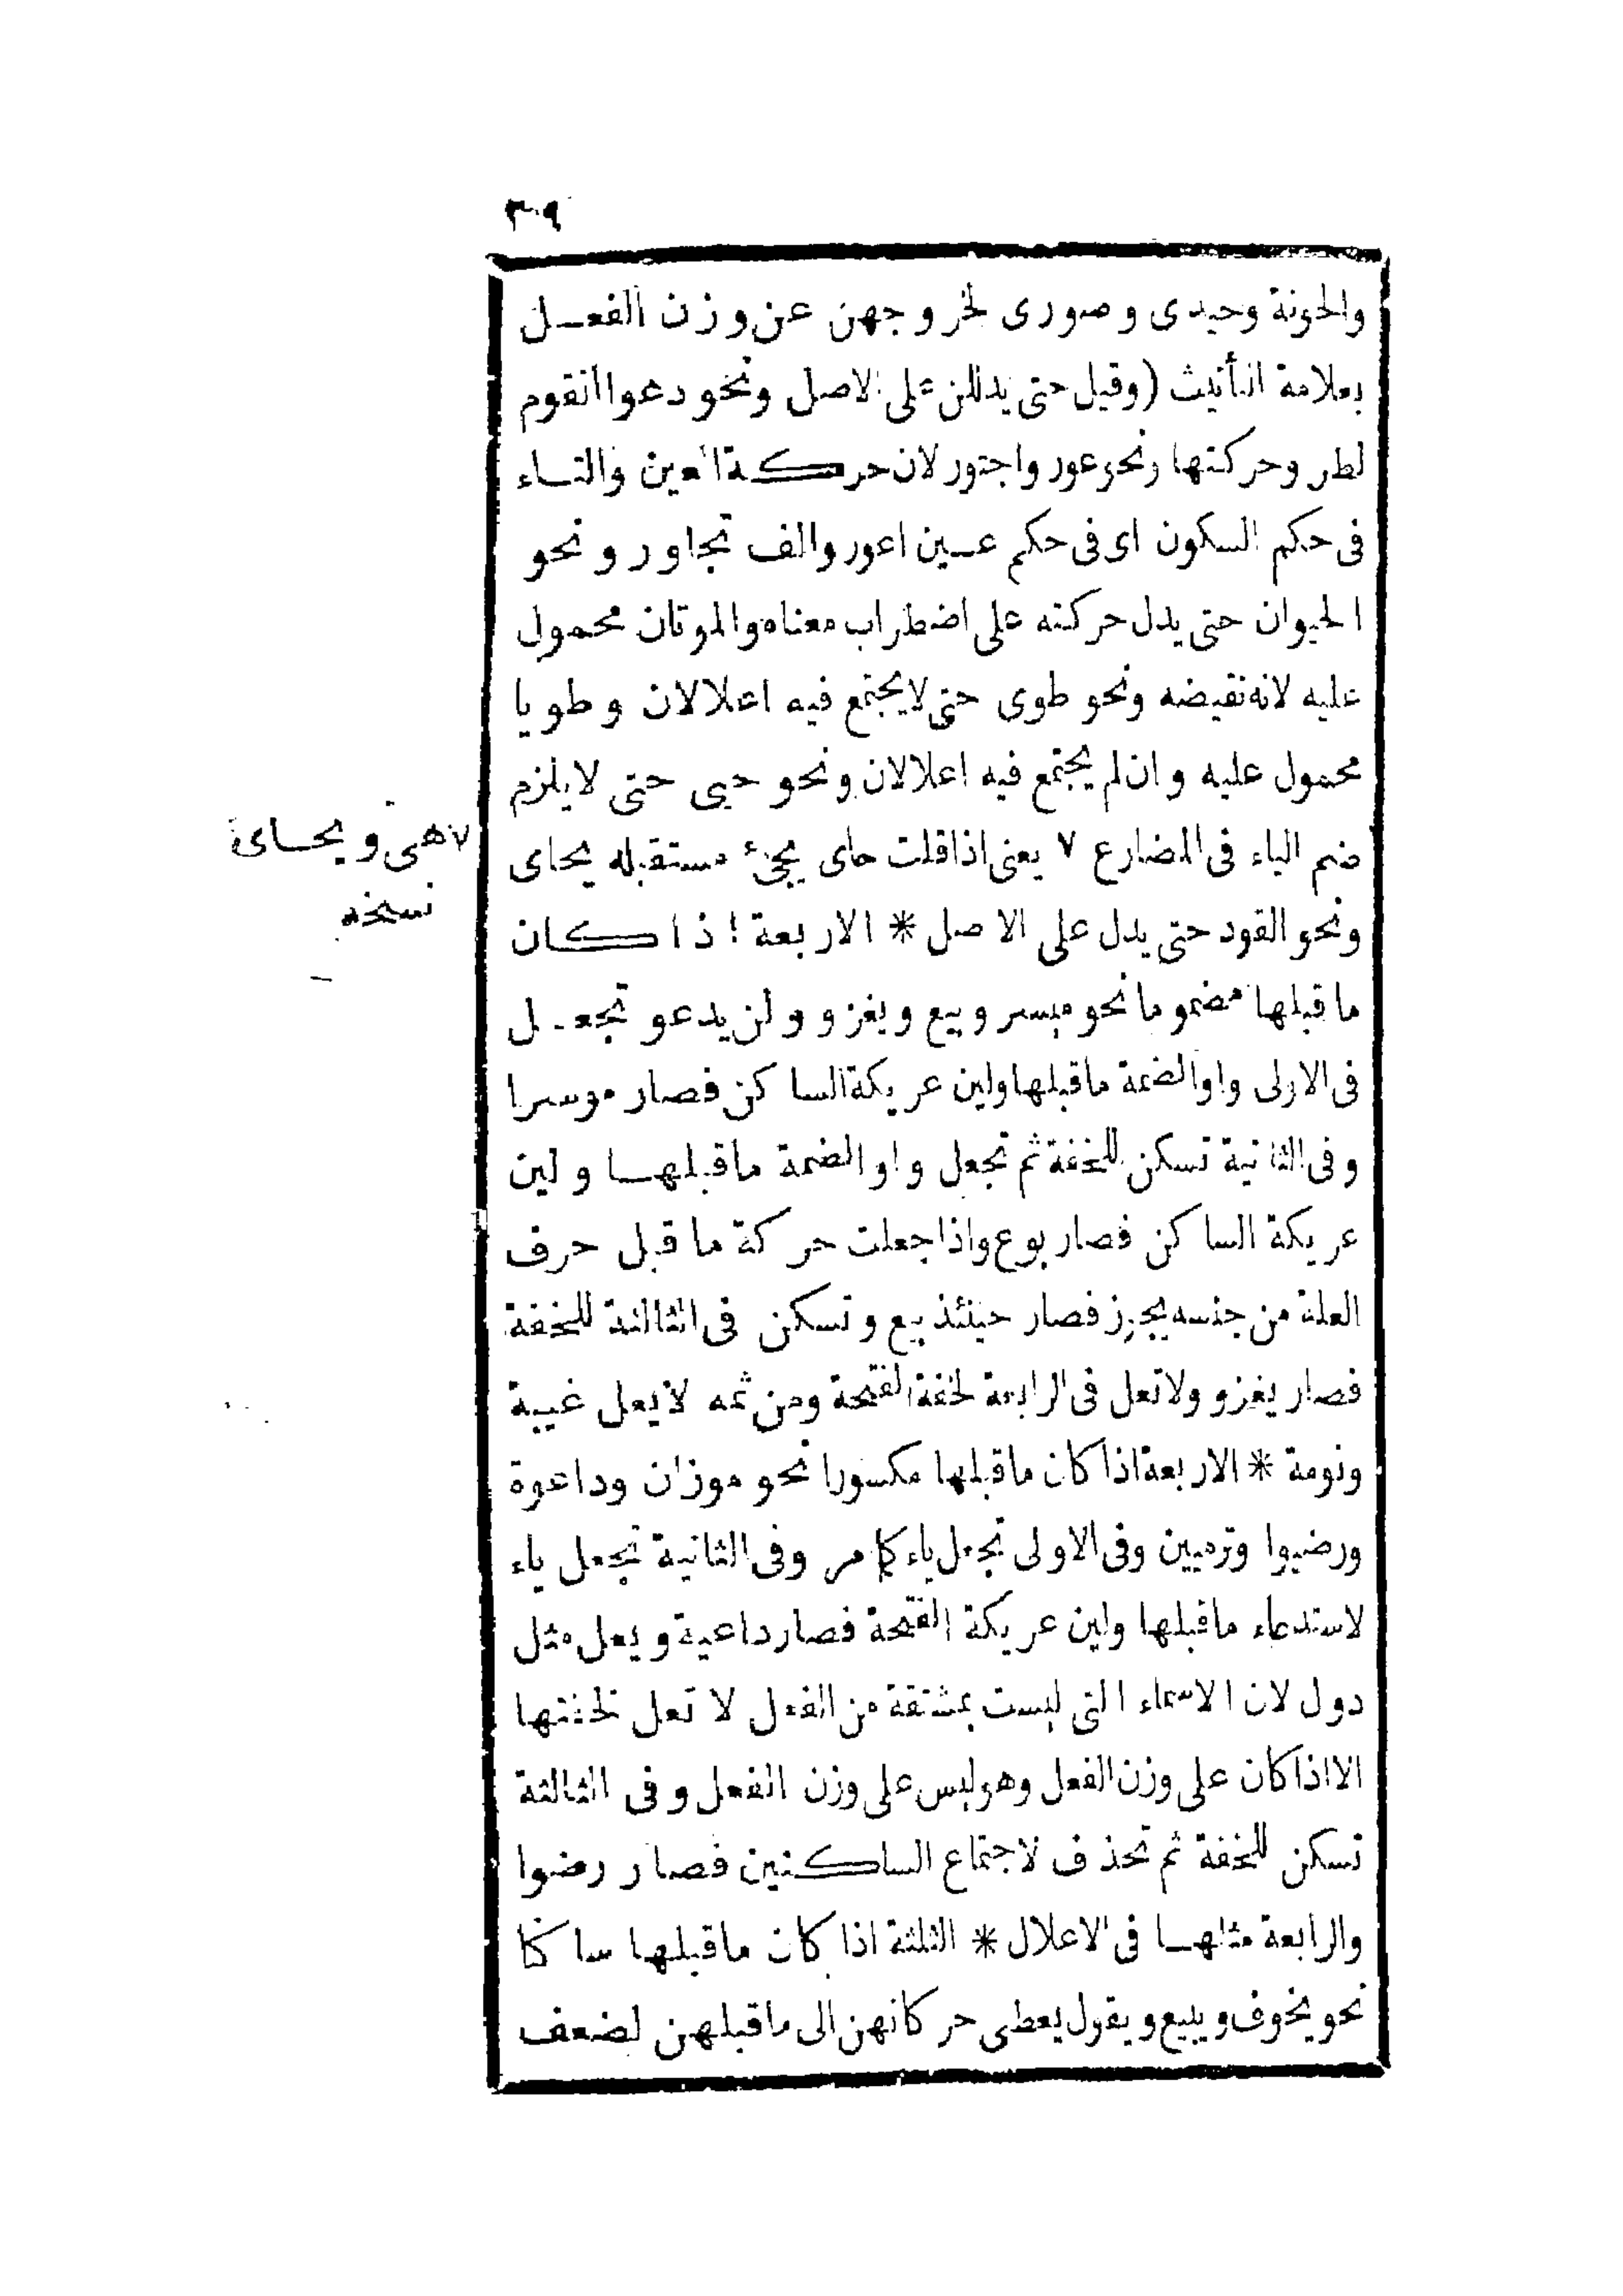 ٣٠٩
والحونة وحيدى وصورى لخروجهن عن وزن الفعـل
بعلامة التأنيث (وقيل حتى يدللن على الاصل ونحو دعوا القوم
لطر وحركتها ونحو عور واجتور لان حركة العين والتاء
فى حكم السكون اى فى حكم عين اعور والف تجاور ونحو
الحيوان حتى يدل حركته على اضطراب معناه والموتان محمول
عليه لانه نقيضه ونحو طوى حتى لا يجتمع فيه اعلالان وطويا
محمول عليه وان لم يجتمع فيه اعلالان ونحو حيى حتى لا يلزم
ضم الياء فى المضارع ٧ يعنى اذا قلت حاى يجئ مستقبله يحاى
٧ هى ويحاى
نسخه
ونحو القود حتى يدل على الاصل * الاربعة اذا كان
ما قبلها مضموما نحو ميسر وبيع ويغزو ولن يدعو تجعـل
فى الاولى واوا لضمة ما قبلها ولين عريكة الساكن فصار موسرا
وفى الثانية تسكن للخفة ثم تجعل واوا لضمة ما قبلها ولين
عريكة الساكن فصار بوع واذا جعلت حركة ما قبل حرف
العلة من جنسه يجوز فصار حينئذ بيع وتسكن فى الثالثة للخفة
فصار يغزو ولا تعل فى الرابعة لخفة الفتحة ومن ثمه لا يعل غيبة
ونومة * الاربعة اذا كان ما قبلها مكسورا نحو موزان وداعوة
ورضيوا وترميين وفى الاولى تجعل ياء كما مر وفى الثانية تجعل ياء
لاستدعاء ما قبلها ولين عريكة الفتحة فصار داعية ويعل مثل
دول لان الاسماء التى ليست بمشتقة من الفعل لا تعل لخفتها
الا اذا كان على وزن الفعل وهو ليس على وزن الفعل وفى الثالثة
تسكن للخفة ثم تحذف لاجتماع الساكنين فصار رضوا
والرابعة مثلها فى الاعلال * الثلثة اذا كان ما قبلها ساكنا
نحو يخوف ويبيع ويقول يعطى حركاتهن الى ما قبلهن لضعف